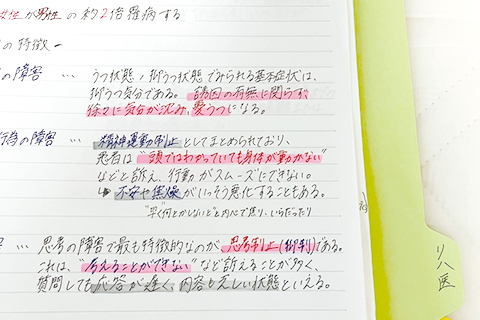 女性が男性の約2倍罹病する
の特徴ー
の障害 … うつ状態,抑うつ状態でみられる基本症状は、
抑うつ気分である。誘因の有無に関らず、
徐々に気分が沈み,憂うつになる。
行為の障害 … 精神運動制止としてまとめられており、
患者は"頭ではわかっていても身体が動かない"
などと訴え、行動がスムーズにできない。
↳不安や焦燥がいっそう悪化することもある。
"早く何とかしないと"と内心で焦り、いらだったり
… 思考の障害で最も特徴的なのが、思考制止(抑制)である。
これは、"考えることができない"など訴えることが多く、
質問しても応答が遅く,内容も乏しい状態といえる。
リハ医